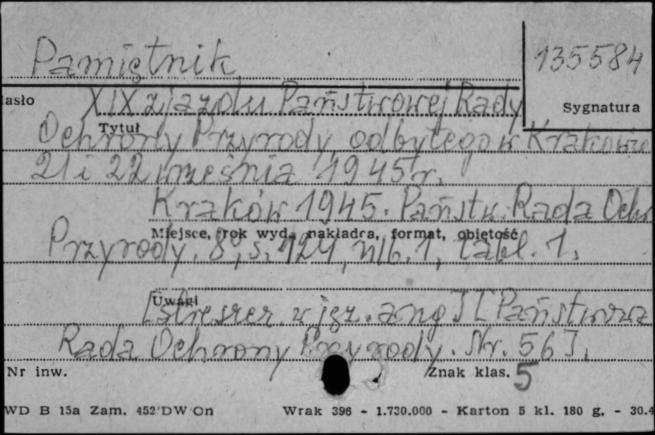 Pamiętnik
135584
XIX zjazdu Państwowej Rady
asło
Sygnatura
Tytuł
Ochrony Przyrody odbytego w Krakowie
21 i 22 września 1945 r.
Kraków 1945. Państw. Rada Ochr.
Miejsce, rok wyd., nakładca, format, objętość
Przyrody. 8°, s. 124, nlb. 1, tabl. 1.
Uwagi
[streszcz. w jęz. ang.] [Państwowa
Rada Ochrony Przyrody. Nr. 56].
Nr inw.
Znak klas. 5
WD B 15a Zam. 452 DW On
Wrak 396 - 1.730.000 - Karton 5 kl. 180 g. - 30.4